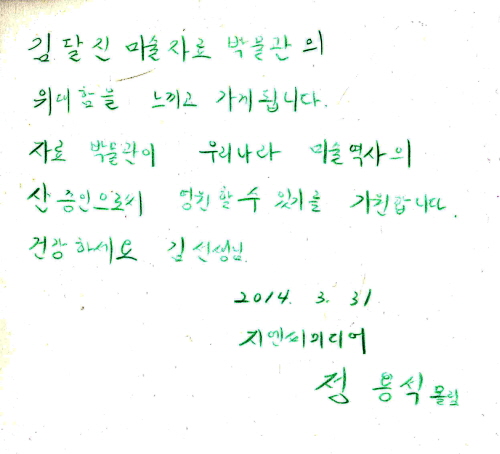 김달진 미술자료 박물관의
위대함을 느끼고 가게됩니다.
자료 박물관이 우리나라 미술역사의
산 증인으로써 영원할 수 있기를 기원합니다.
건강하세요 김선생님.
2014. 3. 31
지엔씨미디어
정용석 올림